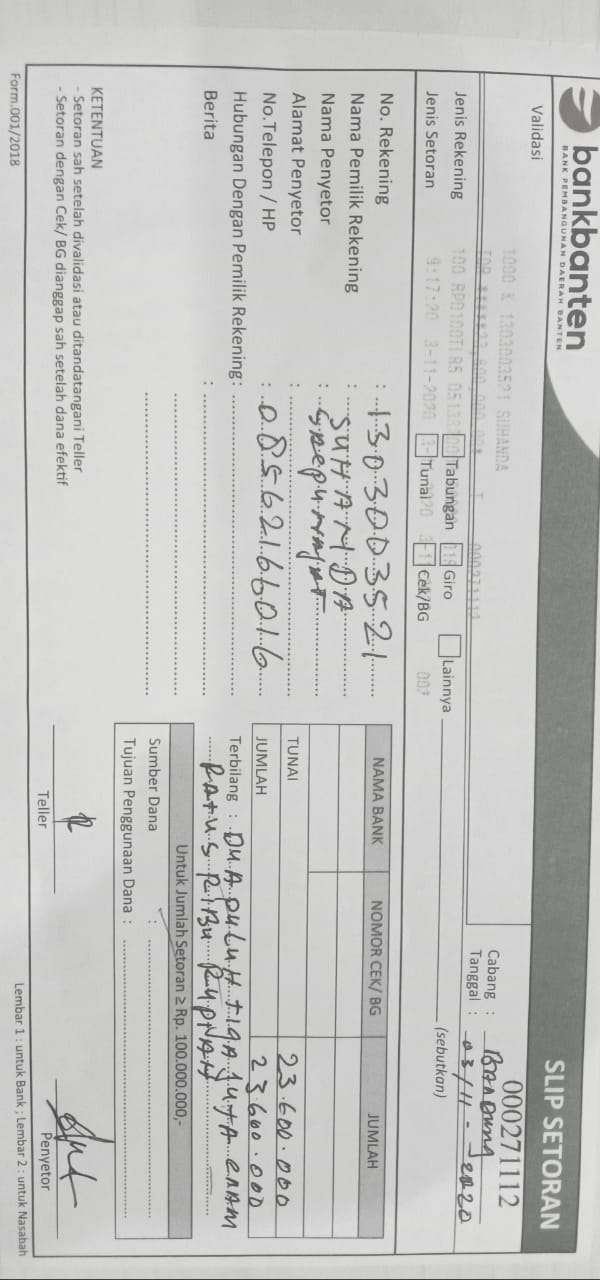 bankbanten
BANK PEMBANGUNAN DAERAH BANTEN
SLIP SETORAN
000271112
Validasi
1000 K 1303003521 SUHANDA
000271112
Cabang : BANDUNG
Tanggal : 03/11-2020
Jenis Rekening
Tabungan Giro Lainnya (sebutkan)
9:17:20 3-11-2020
Jenis Setoran
Tunai Cek/BG
No. Rekening : 1303003521
Nama Pemilik Rekening : SUHANDA
Nama Penyetor :
Alamat Penyetor :
No.Telepon / HP : 08562166016
Hubungan Dengan Pemilik Rekening :
Berita :
NAMA BANK NOMOR CEK/ BG JUMLAH
TUNAI 23.600.000
JUMLAH 23.600.000
Terbilang : DUA PULUH TIGA JUTA ENAM
RATUS RIBU RUPIAH
Untuk Jumlah Setoran ≥ Rp. 100.000.000,-
Sumber Dana :
Tujuan Penggunaan Dana :
KETENTUAN
- Setoran sah setelah divalidasi atau ditandatangani Teller
- Setoran dengan Cek/ BG dianggap sah setelah dana efektif
Teller
Penyetor
Form.001/2018
Lembar 1 : untuk Bank ; Lembar 2 : untuk Nasabah